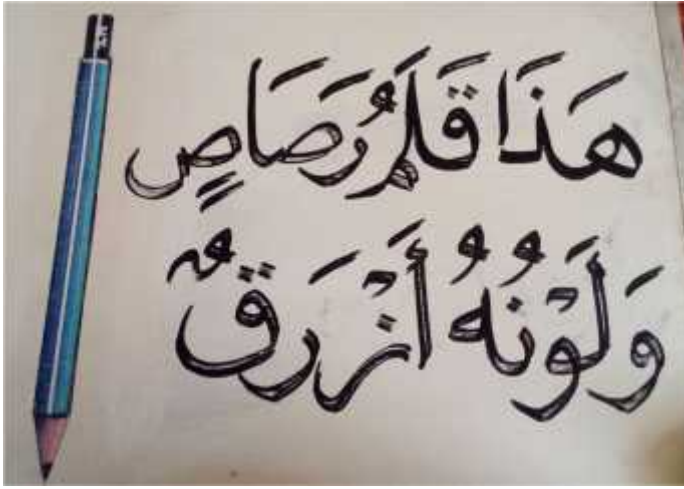 هَذَا قَلَمُ رَصَاصٍ
وَلَوْنُهُ أَزْرَقٌ